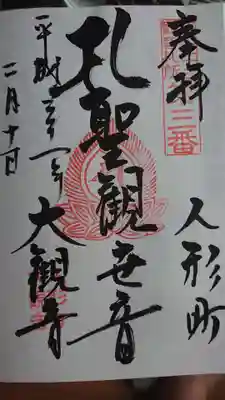 奉拝
三番
人形町
聖觀世音
大觀音
平成三十一年
二月十日